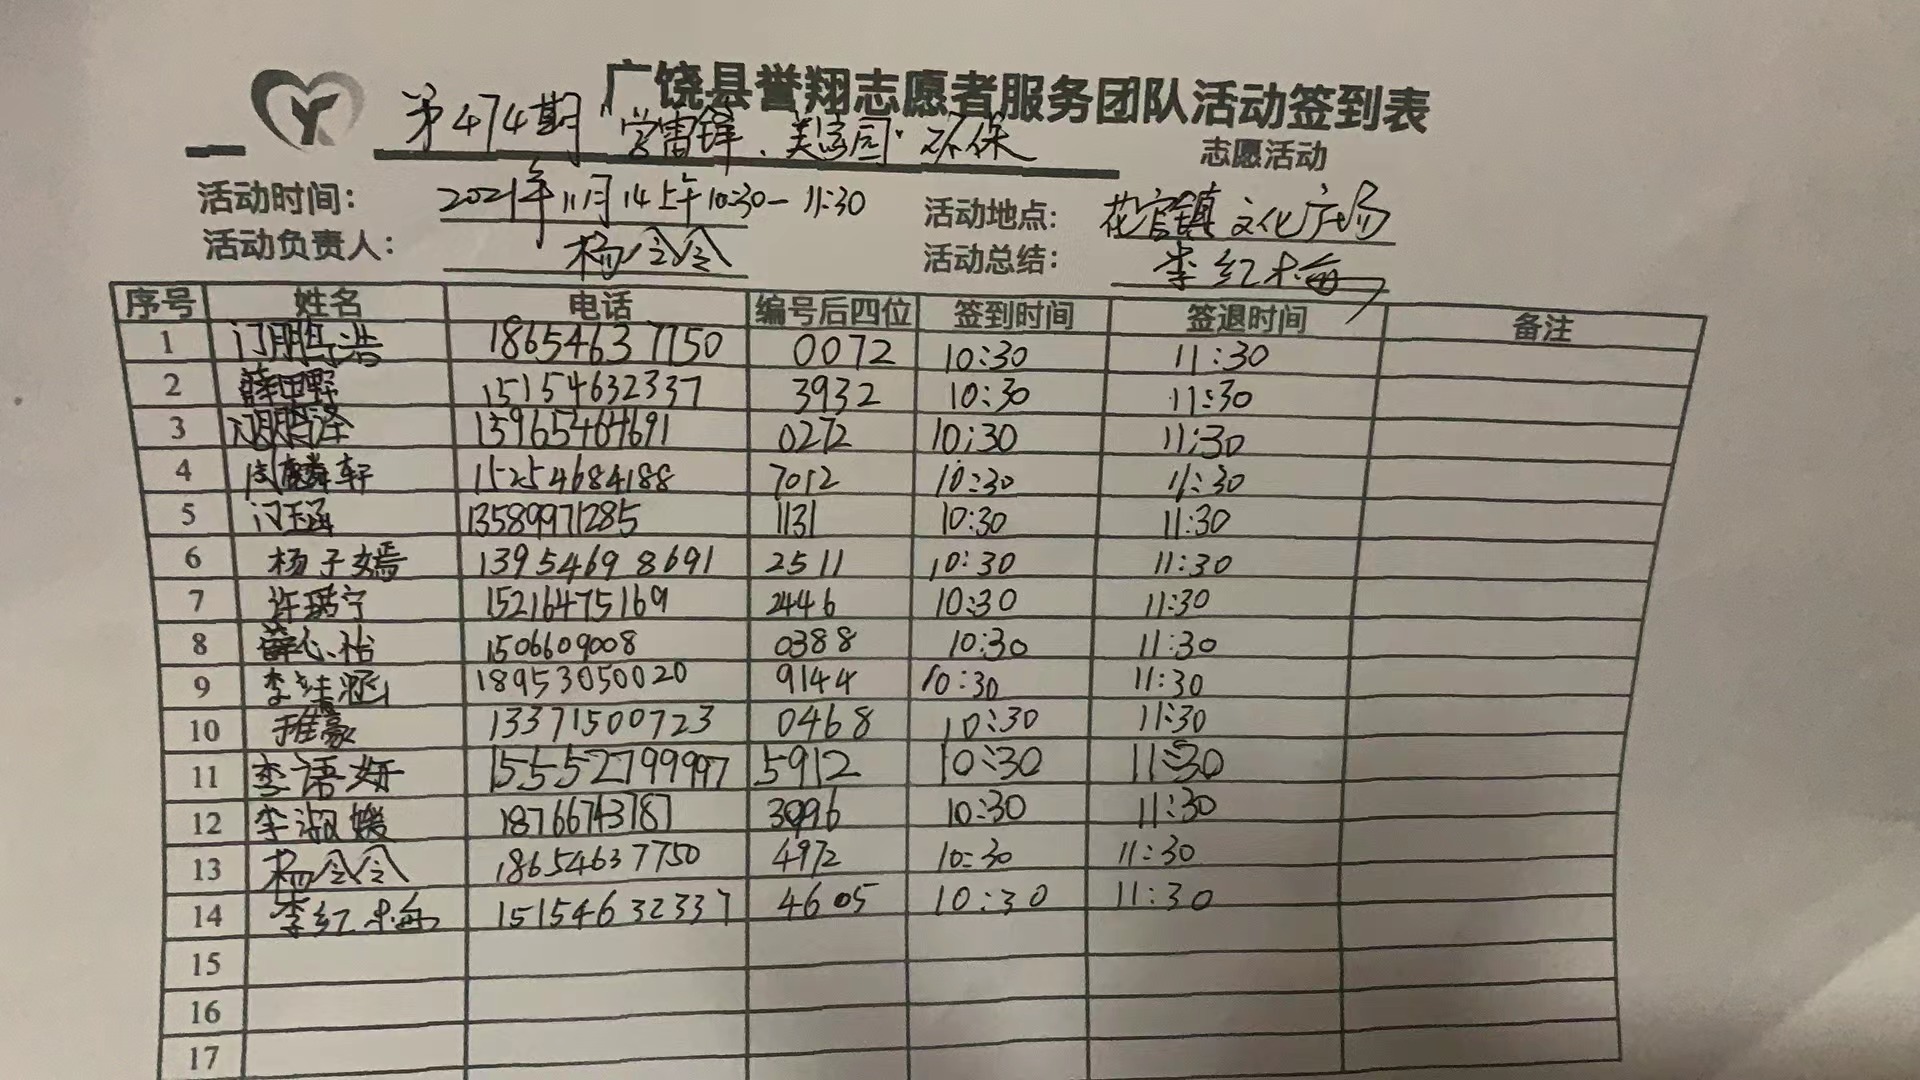 广饶县誉翔志愿者服务团队活动签到表
第474期 "学雷锋、美家园"环保 志愿活动
活动时间: 2021年11月14上午10:30-11:30 活动地点: 花官镇文化广场
活动负责人: 杨令令 活动总结: 李红梅
序号 姓名 电话 编号后四位 签到时间 签退时间 备注
1 门鹏浩 18654637750 0072 10:30 11:30
2 薛田野 15154632337 3932 10:30 11:30
3 门鹏泽 13965464691 0272 10:30 11:30
4 麟轩 15254684188 7012 10:30 11:30
5 门玉涵 13589971285 1131 10:30 11:30
6 杨子嫣 13954698691 2511 10:30 11:30
7 许璐宁 15216475169 2446 10:30 11:30
8 薛心怡 1506609008 0388 10:30 11:30
9 李洁涵 18953050020 9144 10:30 11:30
10 豪 13371500723 0468 10:30 11:30
11 李语妍 15552799997 5912 10:30 11:30
12 李淑媛 18766743787 3096 10:30 11:30
13 杨令令 18654637750 4972 10:30 11:30
14 李红梅 15154632337 4605 10:30 11:30
15
16
17